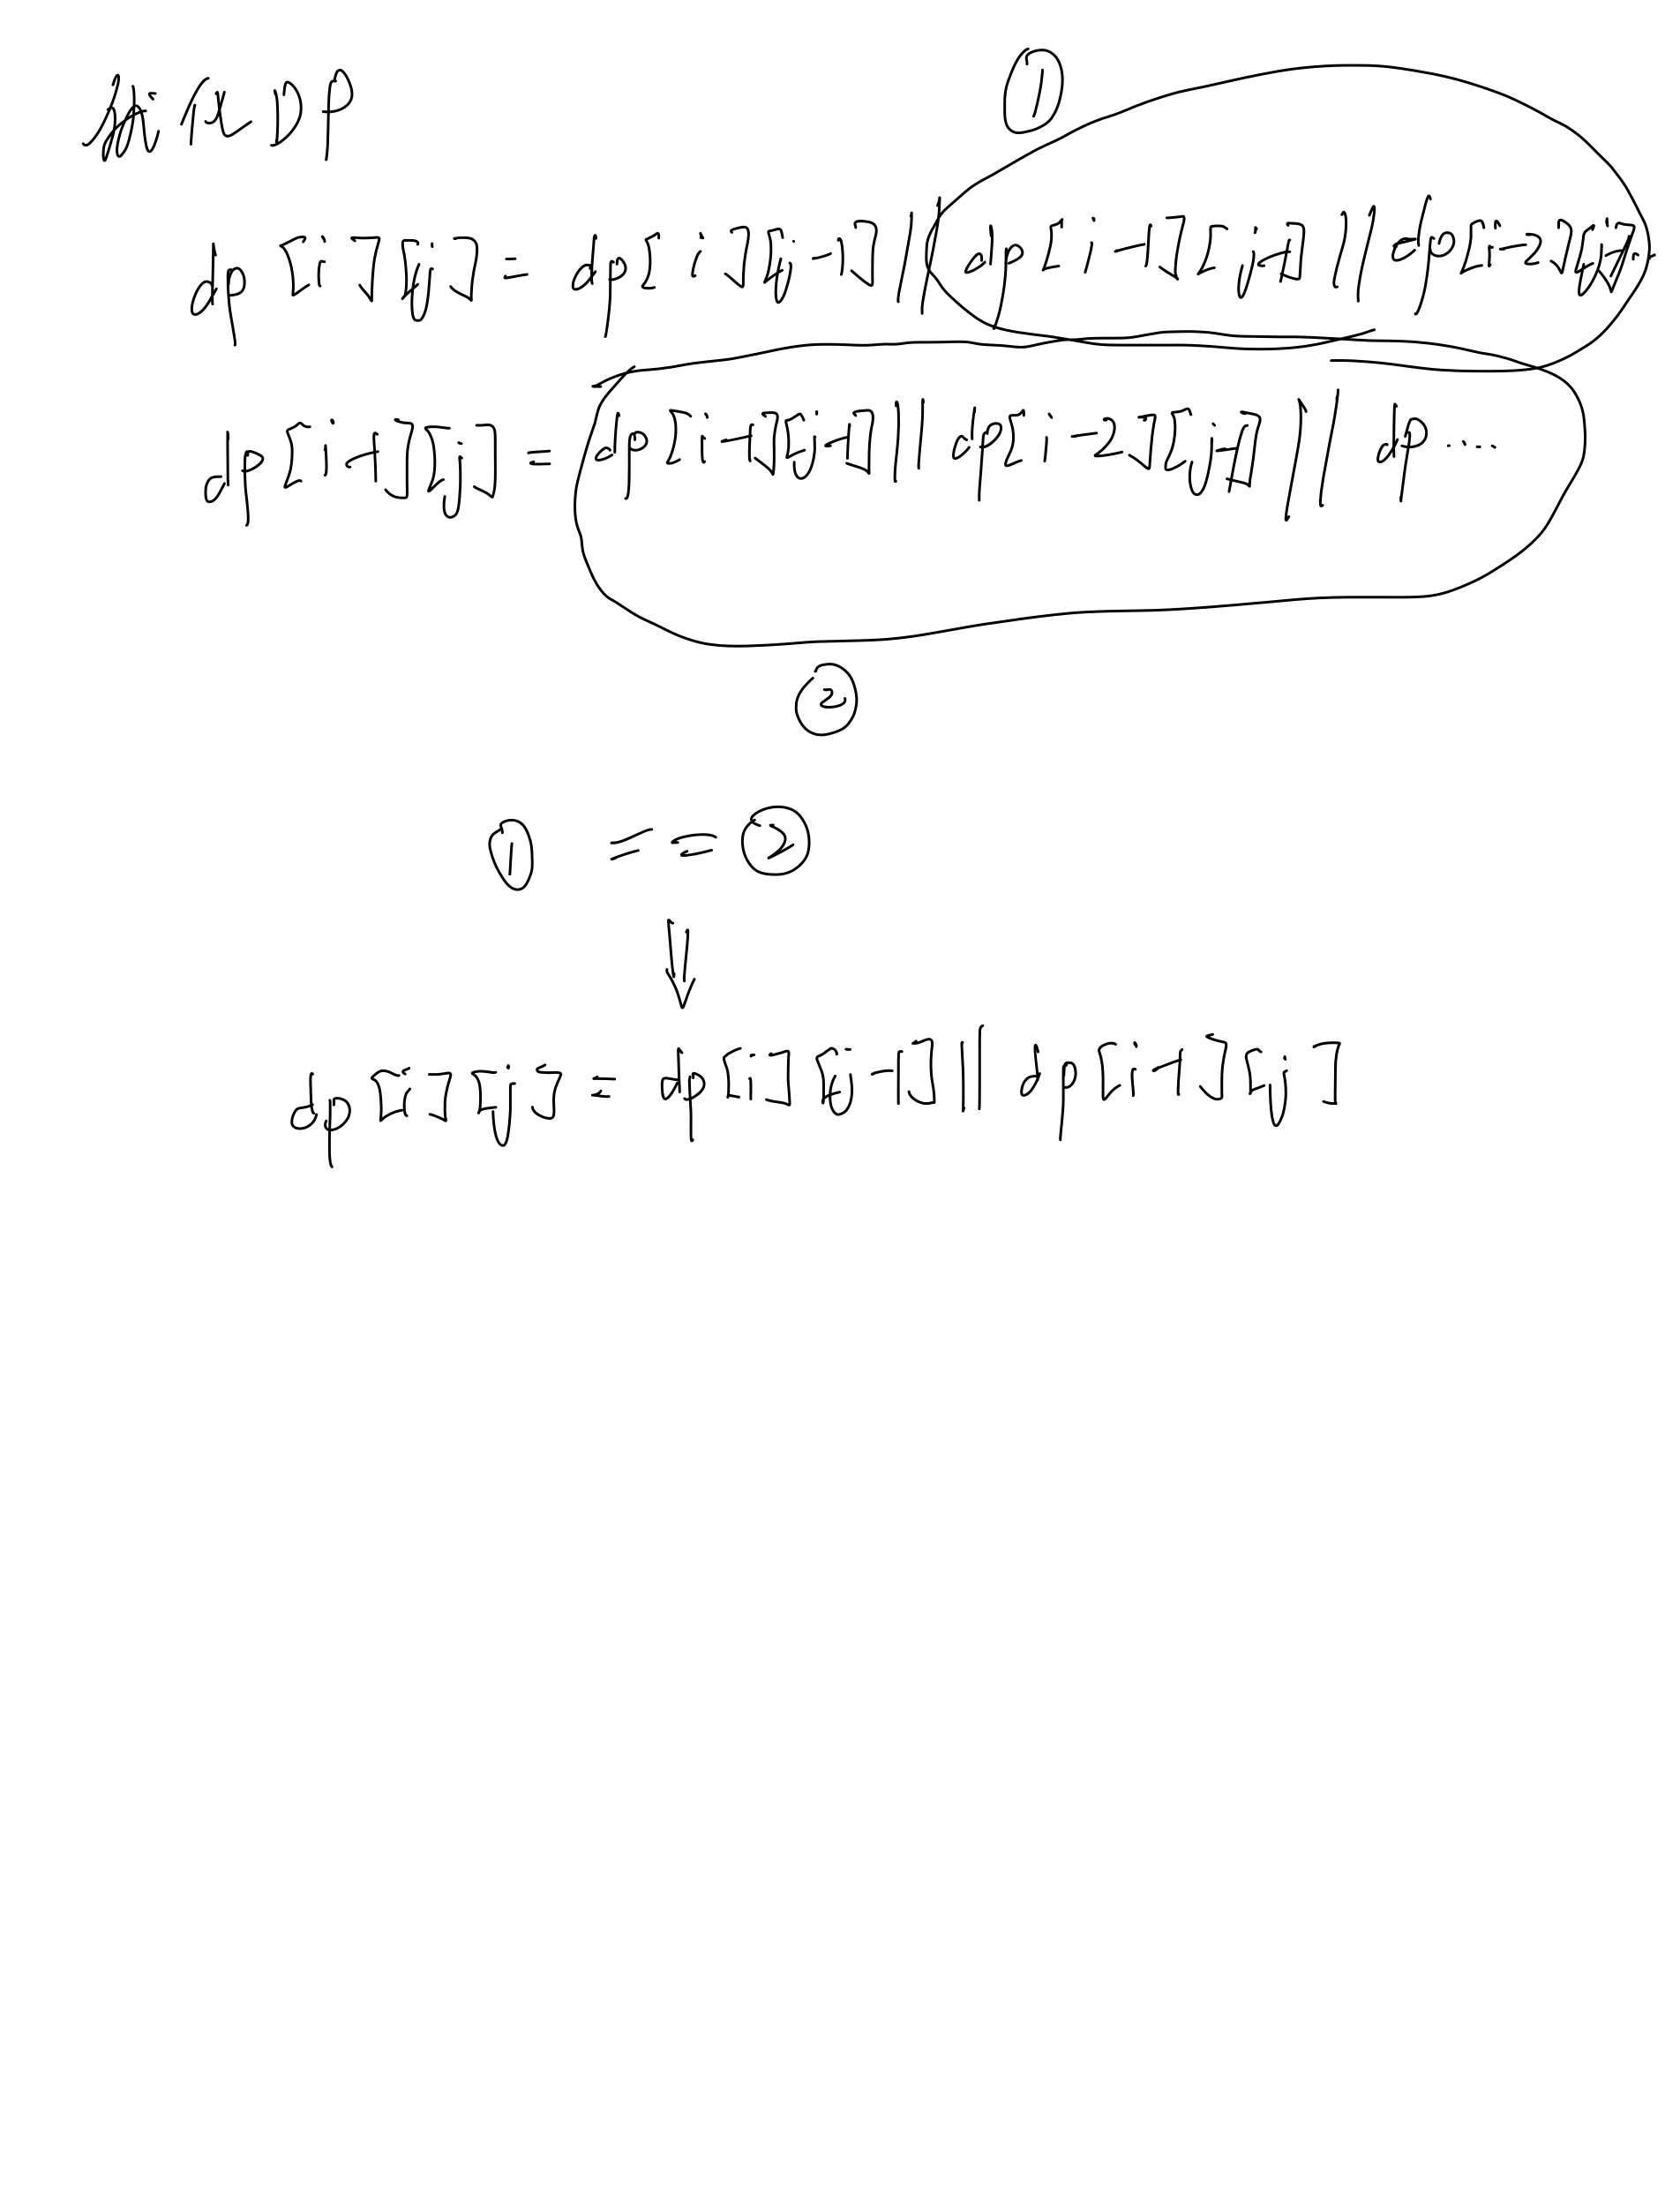 优化DP
①
dp[i][j] = dp[i][j-1] || dp[i-1][j-1] || dp[i-2][j-1]...
dp[i-1][j] = dp[i-1][j-1] || dp[i-2][j-1] || dp...
②
① == ②
⇓
dp[i][j] = dp[i][j-1] || dp[i-1][j]